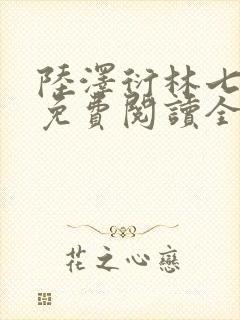 陸澤衍林七
免費閱讀全
花之心戀